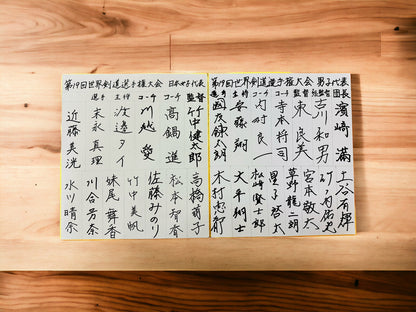 第19回世界剣道選手権大会 男子代表
団長 濱崎 満
総監督 古川 和男
監督 東 良美
コーチ 寺本 将司
コーチ 内村 良一
主将 安藤 翔
選手
土谷 有輝
竹ノ内 佑也
宮本 敬太
草野 龍二朗
星子 啓太
松﨑 賢士郎
大平 翔士
木村 恵都
第19回世界剣道選手権大会 日本女子代表
監督 竹中 健太郎
コーチ 高鍋 進
コーチ 川越 愛
主将
選手 末永 真理
近藤 美洸
高橋 萌子
松本 智香
佐藤 みのり
竹中 美帆
妹尾 舞香
川合 芳奈
水川 晴奈